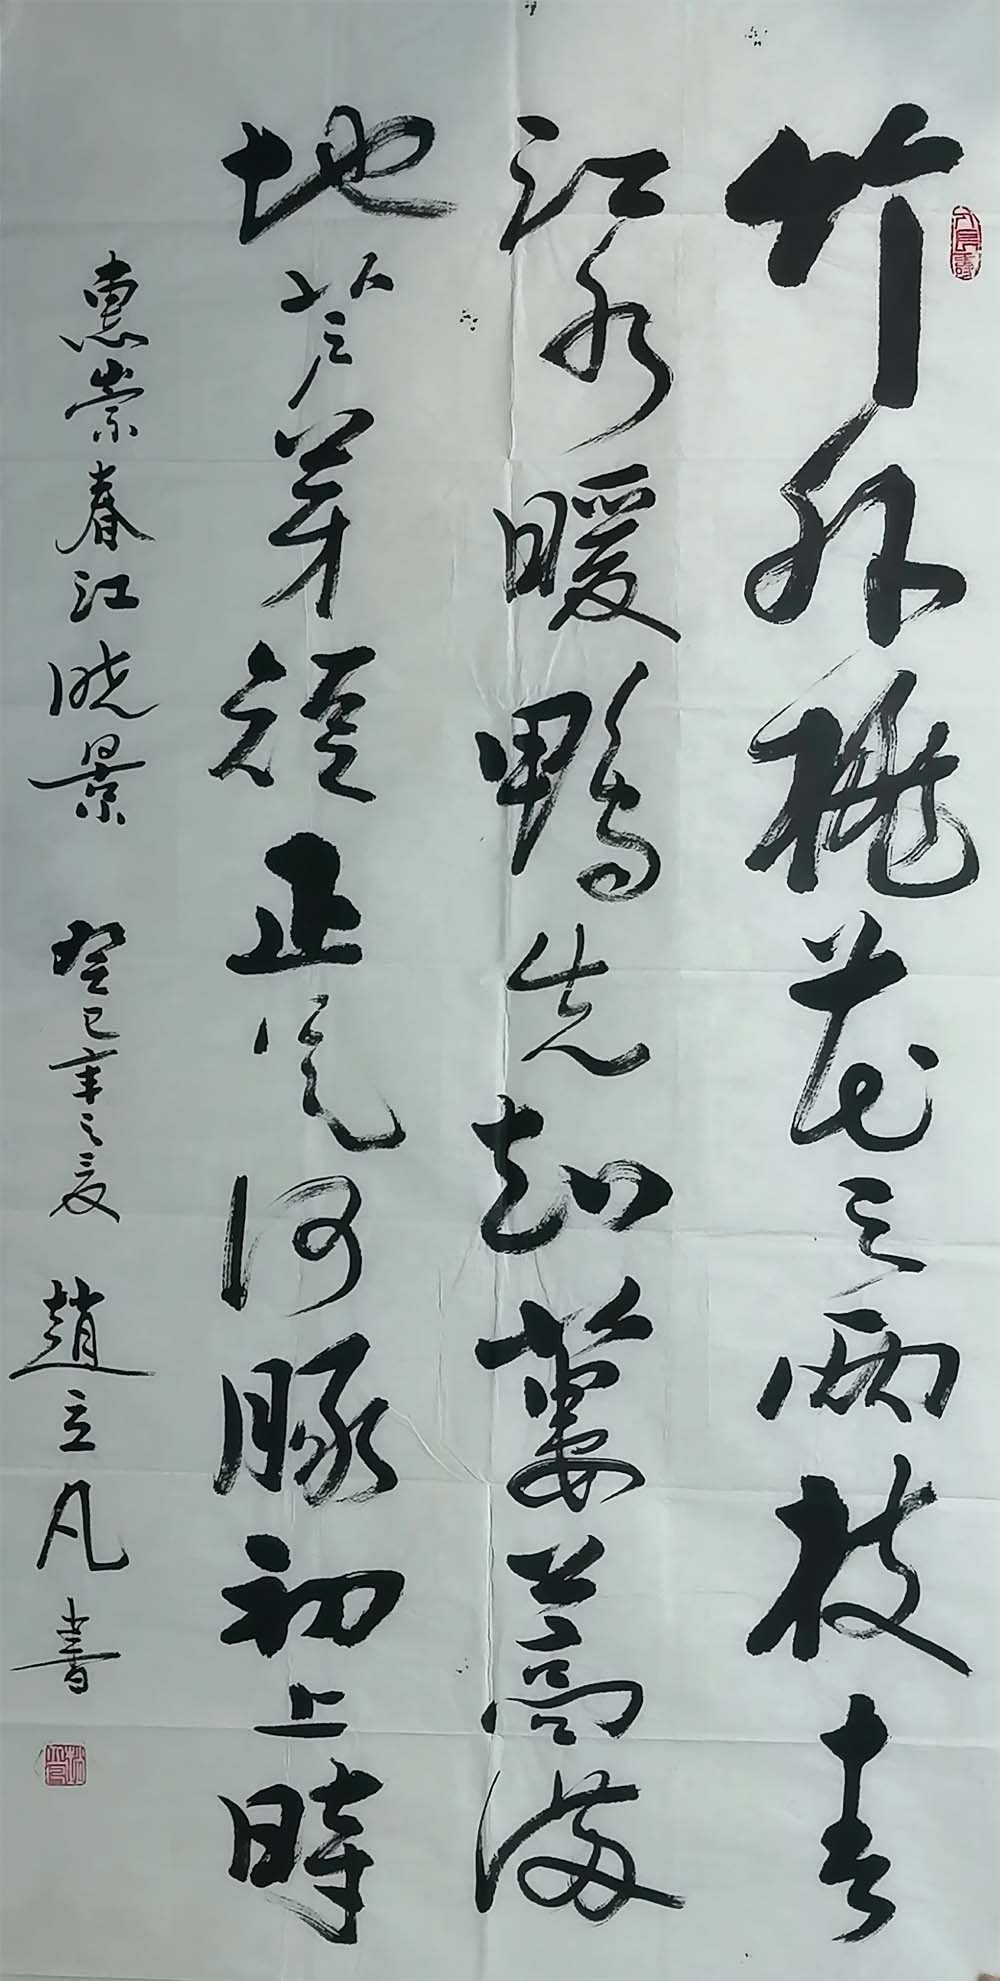 竹外桃花三两枝春
江水暖鸭先知蒌蒿满
地芦芽短正是河豚初上时
惠崇春江晓景 癸巳年之夏 趙立凡書